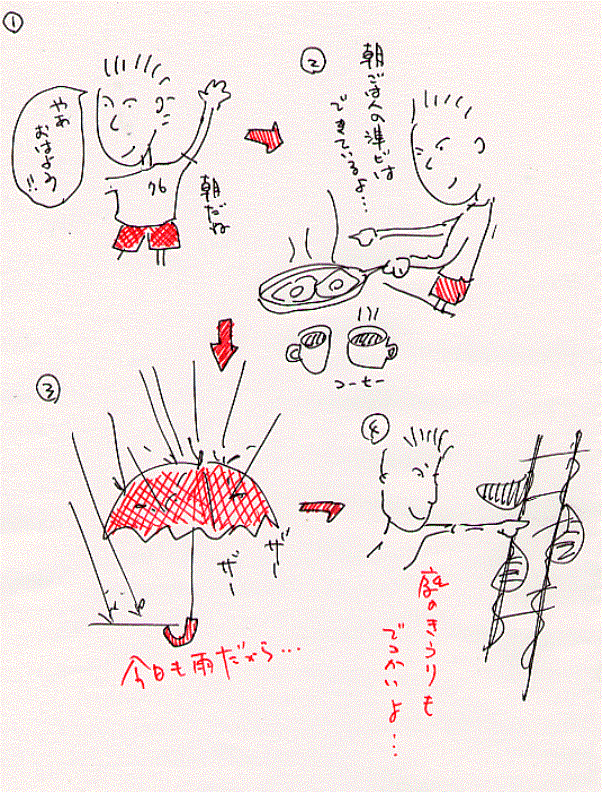 ①
やあ
おはよう
!!
76
朝だね
②
朝ごはんの準ビは
できているよ…
コーヒー
③
ザー
ザー
今日も雨だから…
④
庭のきうりも
でっかいよ…